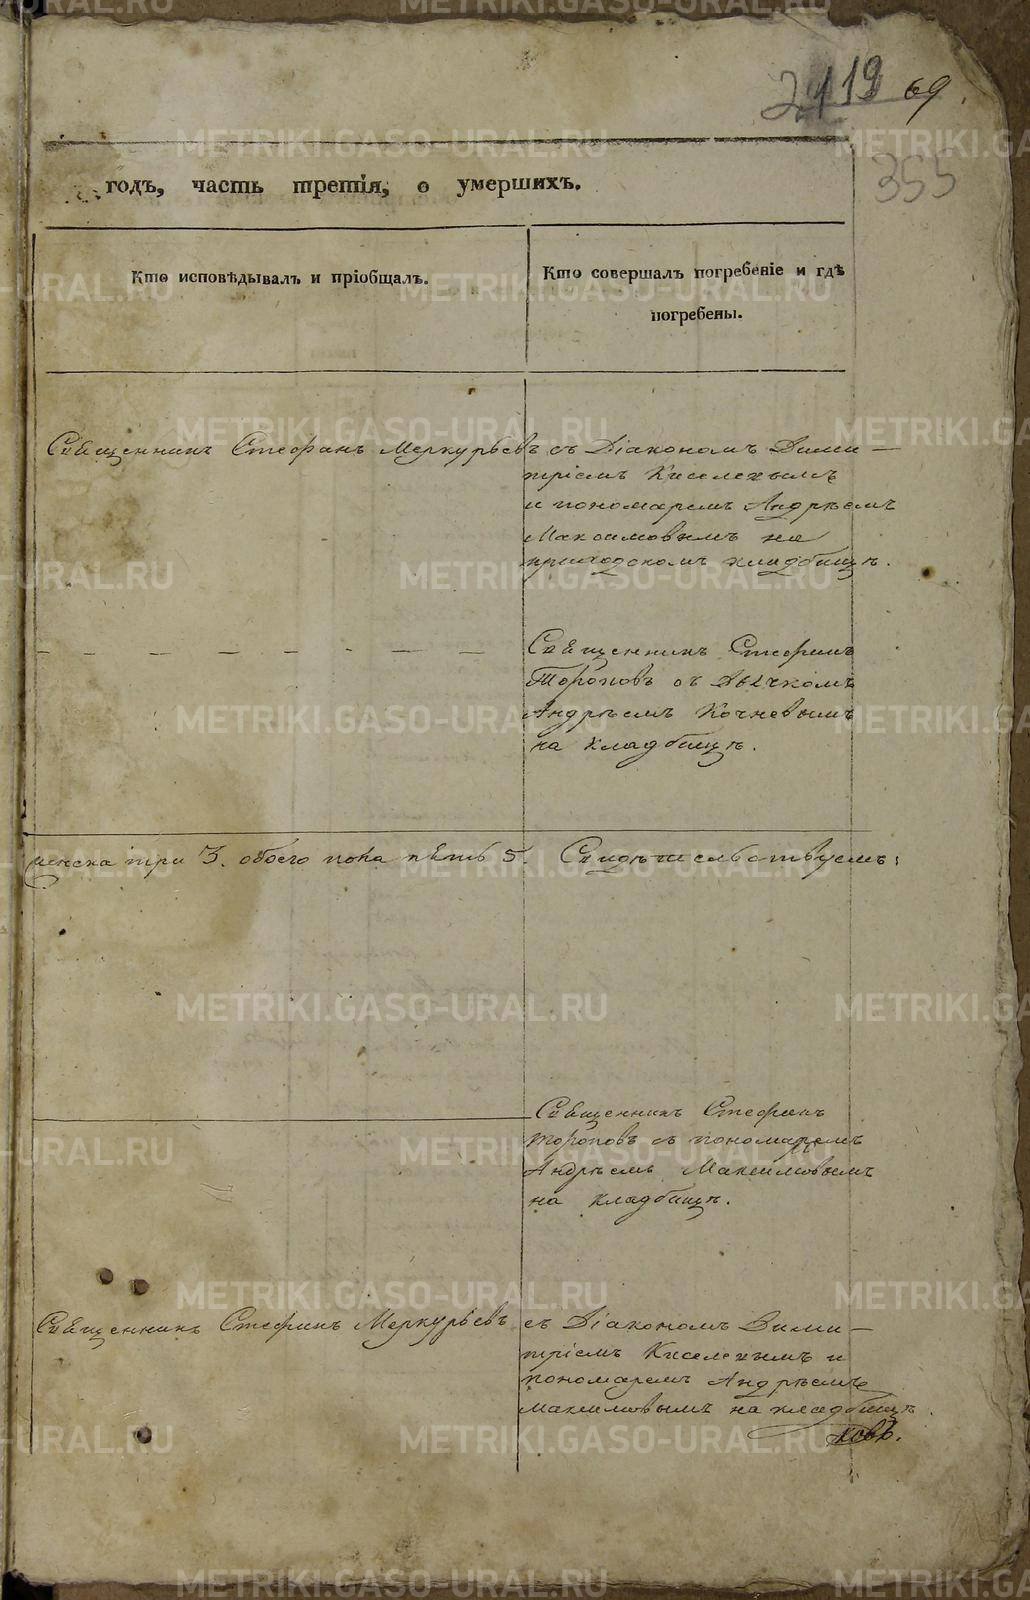 119 69
355
годъ, часть третія, о умершихъ.
Кто исповѣдывалъ и пріобщалъ.
Кто совершалъ погребеніе и гдѣ
погребены.
Священникъ Стефанъ Меркурьевъ съ Діакономъ Дими-
тріемъ Киселевымъ
и пономаремъ Андрѣемъ
Максимовымъ на
приходскомъ кладбищѣ.
Священникъ Стефанъ
Тороповъ съ Дьячкомъ
Андрѣемъ Кочневымъ
на кладбищѣ.
женска три 3. обоего пола пять 5. Свидѣтельствуемъ:
Священникъ Стефанъ
Тороповъ съ пономаремъ
Андрѣемъ Максимовымъ
на кладбищѣ.
Священникъ Стефанъ Меркурьевъ съ Діакономъ Дими-
тріемъ Киселевымъ и
пономаремъ Андрѣемъ
Максимовымъ на кладбищѣ.
METRIKI.GASO-URAL.RU